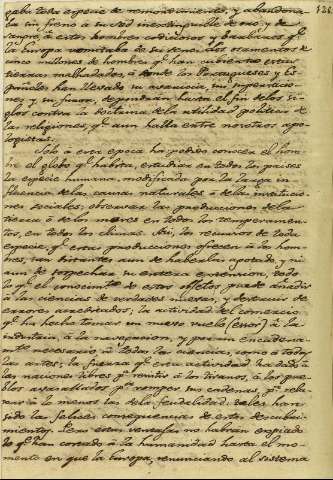 128
gaba toda especie de remordimientos, y abandona-
ba sin freno à su sed inextinguible de oro, y de
sangre, à estos hombres codiciosos y barbaros qe
la Europa vomitaba de su seno. Los osamentos de
cinco millones de hombres qe han cubierto estas
tierras malhadadas, à donde los Portugueses y Es-
pañoles han llevado su avaricia, sus supersticio-
nes y su furor, depondrán hasta el fin de los si-
glos contra la doctrina de la utilidad politica de
las religiones, qe aun halla entre nosotros apo-
logistas.
Solo à esta epoca ha podido conocer el hom-
bre el globo qe habita, estudiar en todos los paises
la especie humana, modificada por la larga in-
fluencia de las causas naturales ò de las instituci-
nes sociales; observar las producciones de la
tierra ò de los mares en todos los temperamen-
tos, en todos los climas. Asi, los recursos de toda
especie, qe estas producciones ofrecen à los hom-
bres, tan distantes aun de haberlas agotado, y ni
aun de sospechar su entera extension, todo
lo qe el conocimto de estos objetos puede añadir
à las ciencias de verdades nuevas, y destruir de
errores acreditados; la actividad del comercio
qe ha hecho tomar un nuevo vuelo (essor) à la
industria, à la navegacion, y por un encadena-
mto necesario à todas las ciencias, como à todas
las artes; la fuerza qe esta actividad ha dado à
las naciones libres pa resistir à los tiranos, à los pue-
blos avasallados pa romper sus cadenas, pa rela-
xar à lo menos las de la feudalidad: tales han
sido las felices consequencias de estos descubri-
mientos. Pero estas ventajas no habran expiado
lo qe han costado à la humanidad hasta el mo-
mento en que la Europa, renunciando al sistema